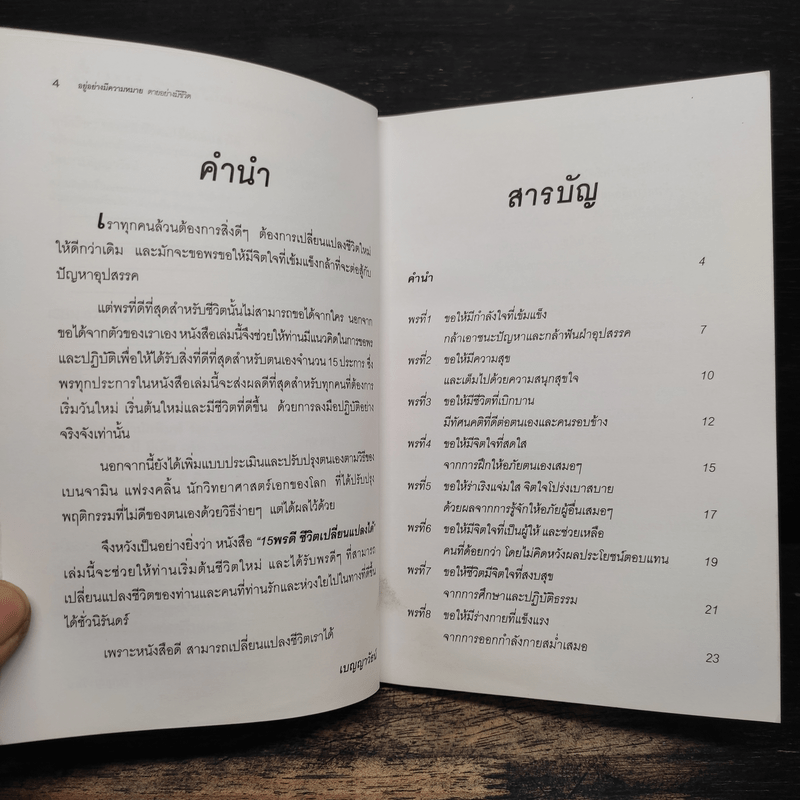 4 อยู่อย่างมีความหมาย ตายอย่างมีชีวิต
คำนำ
เราทุกคนล้วนต้องการสิ่งดีๆ ต้องการเปลี่ยนแปลงชีวิตใหม่
ให้ดีกว่าเดิม และมักจะขอพรขอให้มีจิตใจที่เข้มแข็งกล้าที่จะต่อสู้กับ
ปัญหาอุปสรรค
แต่พรที่ดีที่สุดสำหรับชีวิตนั้นไม่สามารถขอได้จากใคร นอกจาก
ขอได้จากตัวของเราเอง หนังสือเล่มนี้จึงช่วยให้ท่านมีแนวคิดในการขอพร
และปฏิบัติเพื่อให้ได้รับสิ่งที่ดีที่สุดสำหรับตนเองจำนวน 15 ประการ ซึ่ง
พรทุกประการในหนังสือเล่มนี้จะส่งผลดีที่สุดสำหรับทุกคนที่ต้องการ
เริ่มวันใหม่ เริ่มต้นใหม่และมีชีวิตที่ดีขึ้น ด้วยการลงมือปฏิบัติอย่าง
จริงจังเท่านั้น
นอกจากนี้ยังได้เพิ่มแบบประเมินและปรับปรุงตนเองตามวิธีของ
เบนจามิน แฟรงคลิ้น นักวิทยาศาสตร์เอกของโลก ที่ได้ปรับปรุง
พฤติกรรมที่ไม่ดีของตนเองด้วยวิธีง่ายๆ แต่ได้ผลไว้ด้วย
จึงหวังเป็นอย่างยิ่งว่า หนังสือ "15พรดี ชีวิตเปลี่ยนแปลงได้"
เล่มนี้จะช่วยให้ท่านเริ่มต้นชีวิตใหม่ และได้รับพรดีๆ ที่สามารถ
เปลี่ยนแปลงชีวิตของท่านและคนที่ท่านรักและห่วงใยไปในทางที่ดีขึ้น
ได้ชั่วนิรันดร์
เพราะหนังสือดี สามารถเปลี่ยนแปลงชีวิตเราได้
เบญญาวัธน์
สารบัญ
คำนำ 4
พรที่1 ขอให้มีกำลังใจที่เข้มแข็ง
กล้าเอาชนะปัญหาและกล้าฟันฝ่าอุปสรรค 7
พรที่2 ขอให้มีความสุข
และเต็มไปด้วยความสนุกสุขใจ 10
พรที่3 ขอให้มีชีวิตที่เบิกบาน
มีทัศนคติที่ดีต่อตนเองและคนรอบข้าง 12
พรที่4 ขอให้มีจิตใจที่สดใส
จากการฝึกให้อภัยตนเองเสมอๆ 15
พรที่5 ขอให้ร่าเริงแจ่มใส จิตใจโปร่งเบาสบาย
ด้วยผลจากการรู้จักให้อภัยผู้อื่นเสมอๆ 17
พรที่6 ขอให้มีจิตใจที่เป็นผู้ให้ และช่วยเหลือ
คนที่ด้อยกว่า โดยไม่คิดหวังผลประโยชน์ตอบแทน 19
พรที่7 ขอให้ชีวิตมีจิตใจที่สงบสุข
จากการศึกษาและปฏิบัติธรรม 21
พรที่8 ขอให้มีร่างกายที่แข็งแรง
จากการออกกำลังกายสม่ำเสมอ 23